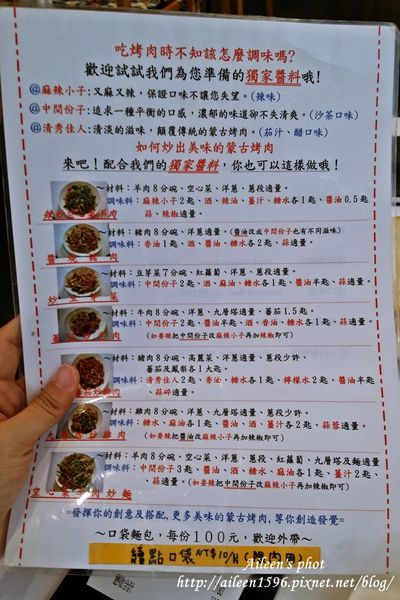 吃烤肉時不知該怎麼調味嗎?
歡迎試試我們為您準備的獨家醬料哦!
@麻辣小子:又麻又辣,保證口味不讓您失望。(辣味)
@中間份子:追求一種平衡的口感,濃郁的味道卻不失清爽。(沙茶口味)
@清秀佳人:清淡的滋味,顛覆傳統的蒙古烤肉。(茄汁、醋口味)
如何炒出美味的蒙古烤肉
來吧!配合我們的獨家醬料,你也可以這樣做哦!
~材料:羊肉8分碗、空心菜、洋蔥、蔥段適量。
調味料:麻辣小子2匙、酒、辣油、薑汁、糖水各1匙、醬油0.5匙
蒜、辣椒適量。
~材料:豬肉8分碗、洋蔥適量。(醬油改成中間份子也有不同滋味)
調味料:香油1匙、酒、醬油、糖水各2匙、蒜適量。
~材料:豆芽菜7分碗、紅蘿蔔、洋蔥、蔥段適量。
調味料:中間份子2匙、酒、麻油、糖水各1匙、醬油半匙、蒜適量。
~材料:牛肉8分碗、洋蔥、九層塔適量、蕃茄1.5匙。
調味料:中間份子2匙、醬油半匙、酒、香油、糖水各1匙、蒜適量。
(如要辣把中間份子改麻辣小子再加辣椒即可)
~材料:豬肉8分碗、高麗菜、洋蔥適量、蔥段少許、
蕃茄及鳳梨各1大匙。
調味料:清秀佳人2匙、香油、糖水各1匙、檸檬水2匙、醬油半匙
、蒜碎適量。
~材料:雞肉8分碗、洋蔥、九層塔適量、蔥段少許。
調味料:糖水、麻油各1匙、醬油、酒、薑汁各2匙、蒜蓉適量。
(如要辣把醬油改麻辣小子再加辣椒即可)
九
雞肉
~材料:羊肉8分碗、空心菜、洋蔥、蔥段、紅蘿蔔、九層塔各適量
調味料:中間份子3匙、醬油、酒、糖水、麻油各1匙、薑汁2匙
、蒜適量。(如要辣把中間份子改麻辣小子再加辣椒即可)
空心菜羊肉炒麵
=發揮你的創意及搭配,更多美味的蒙古烤肉,等你創造發覺=
~口袋麵包,每份100元,歡迎外帶~
續點口袋NT$10/片(限內用)
Aileen's phot
http://aileen1596.pixnet.net/blog/